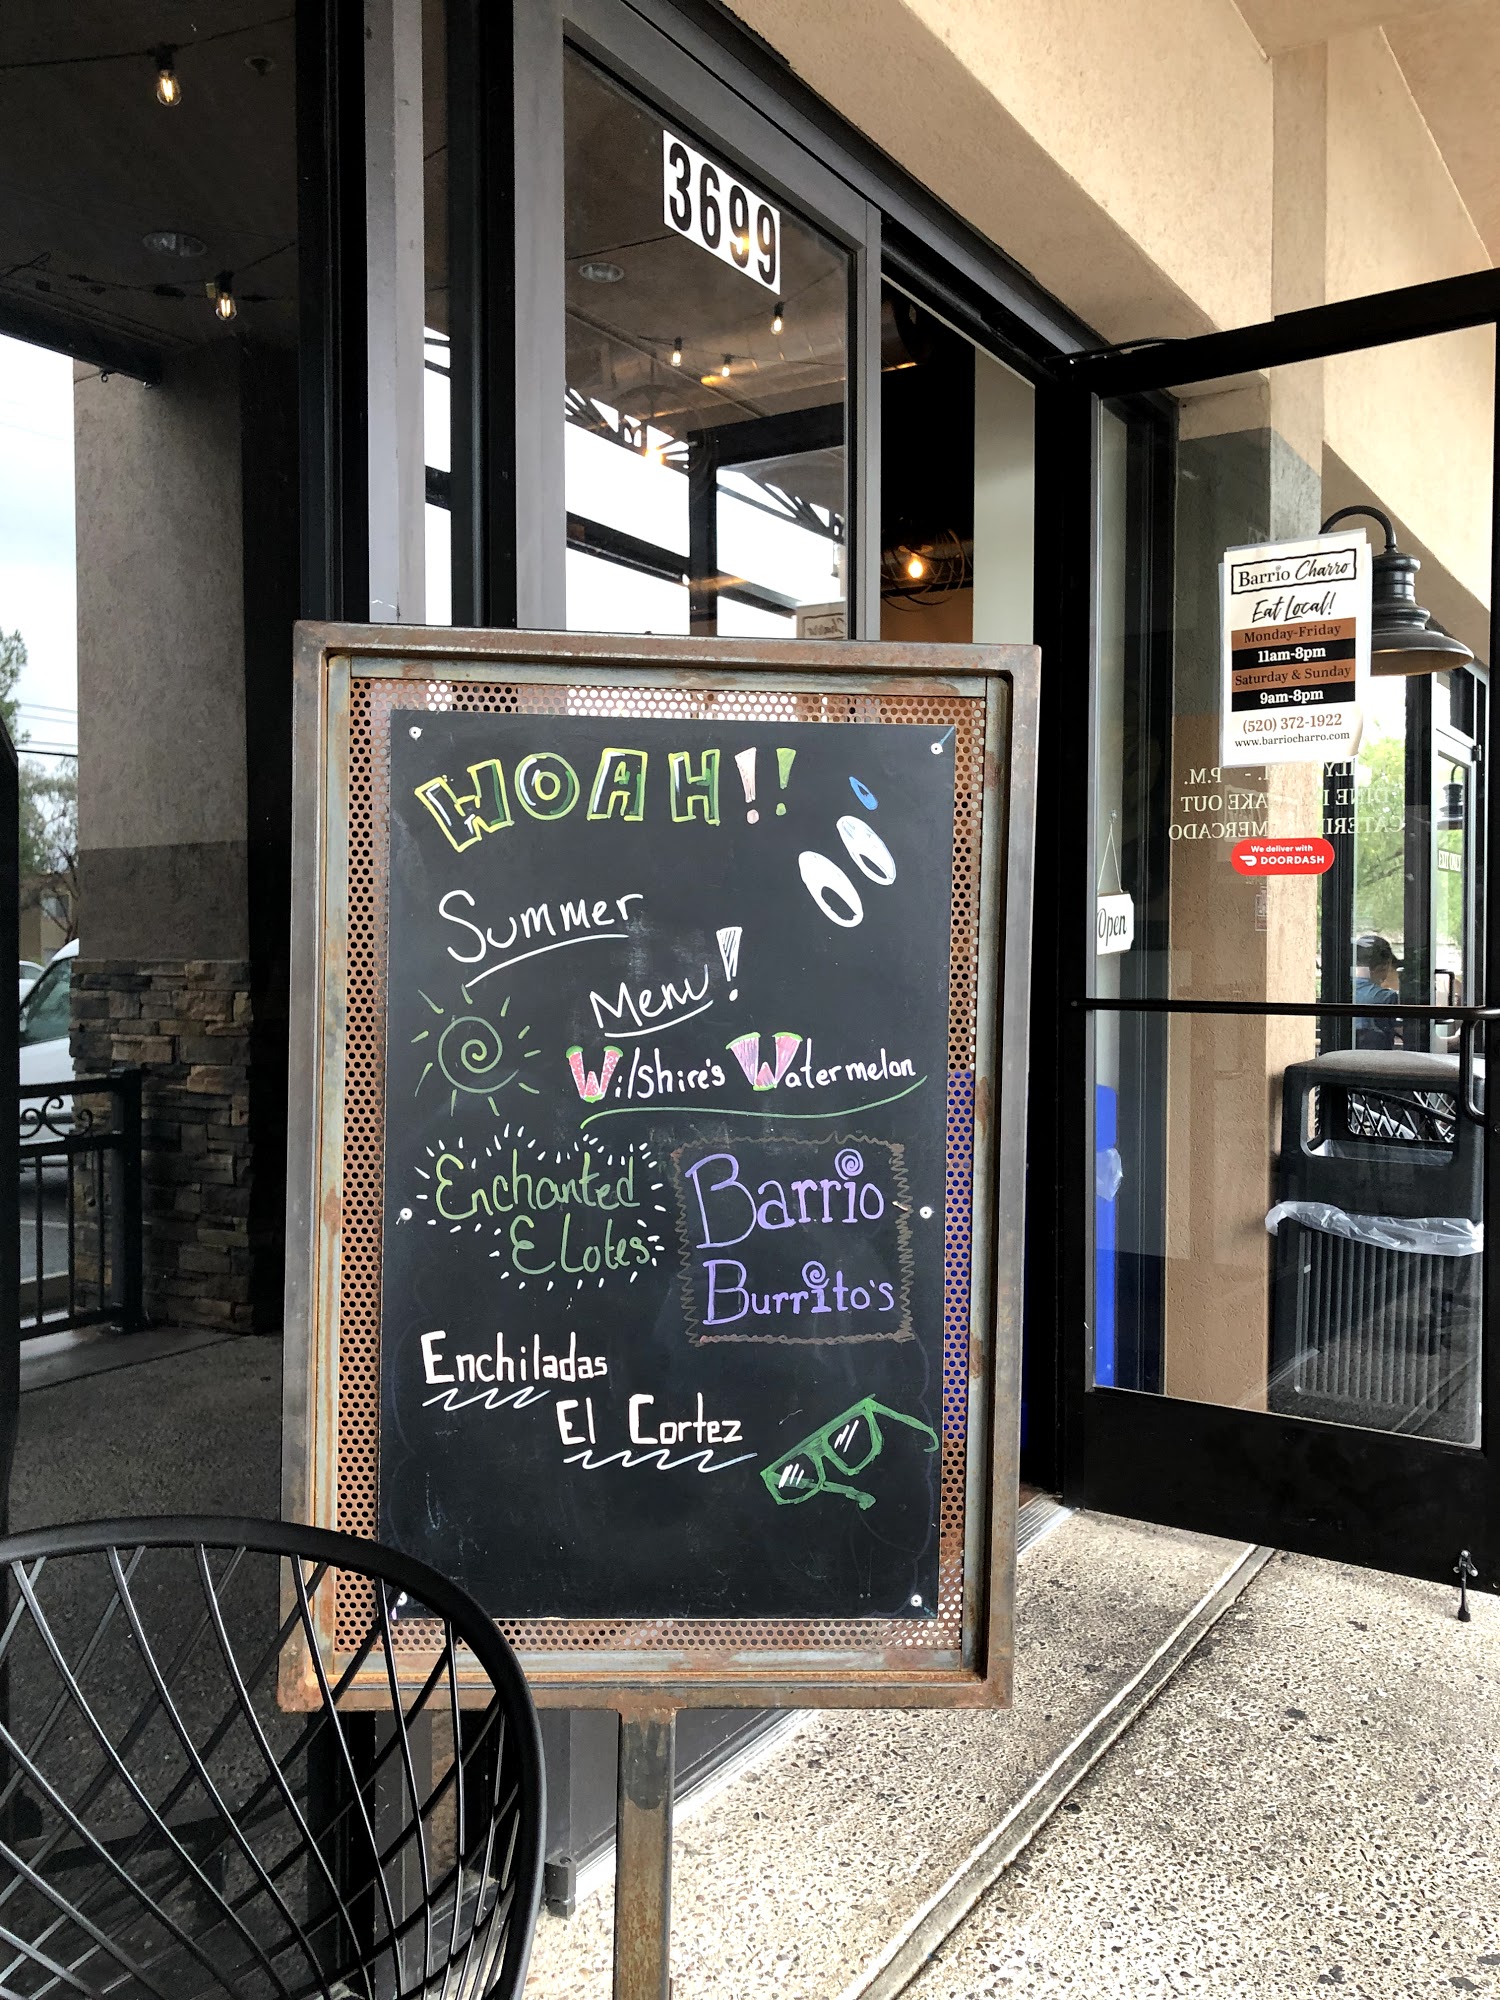 3699
WOAH!!
Summer
Menu!
Wilshire's Watermelon
Enchanted
Elotes
Barrio
Burrito's
Enchiladas
El Cortez
Barrio Charro
Eat Local!
Monday-Friday
11am-8pm
Saturday & Sunday
9am-8pm
(520) 372-1922
www.barriocharro.com
P.M.
TAKE OUT
MERCADO
We deliver with
DOORDASH
Open